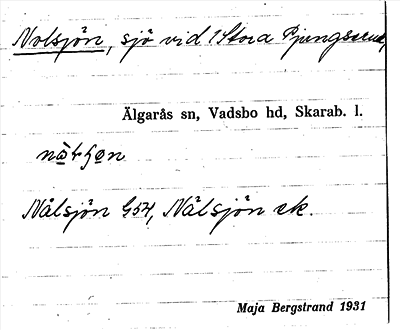 Nolsjön, sjö vid 1 Stora
Älgarås sn, Vadsbo hd, Skarab. l.
Nålsjön G54, Nålsjön ek.
Maja Bergstrand 1931